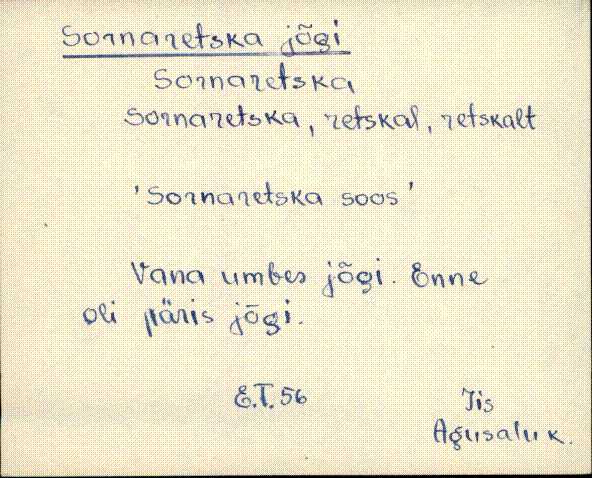 Sornaretska jõgi
Sornaretska
Sornaretska, retskal, retskalt
'Sornaretska soos'
Vana umbes jõgi. Enne
oli päris jõgi.
E.T. 56
Iis
Agusalu k.